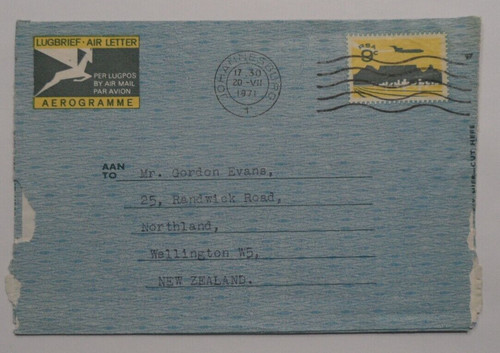 LUGBRIEF·AIR LETTER
PER LUGPOS
BY AIR MAIL
PAR AVION
AEROGRAMME
JOHANNESBURG
17.30
20-VII
1971
1
RSA
9c
AAN
TO
Mr. Gordon Evans,
25, Randwick Road,
Northland,
Wellington W5,
NEW ZEALAND.